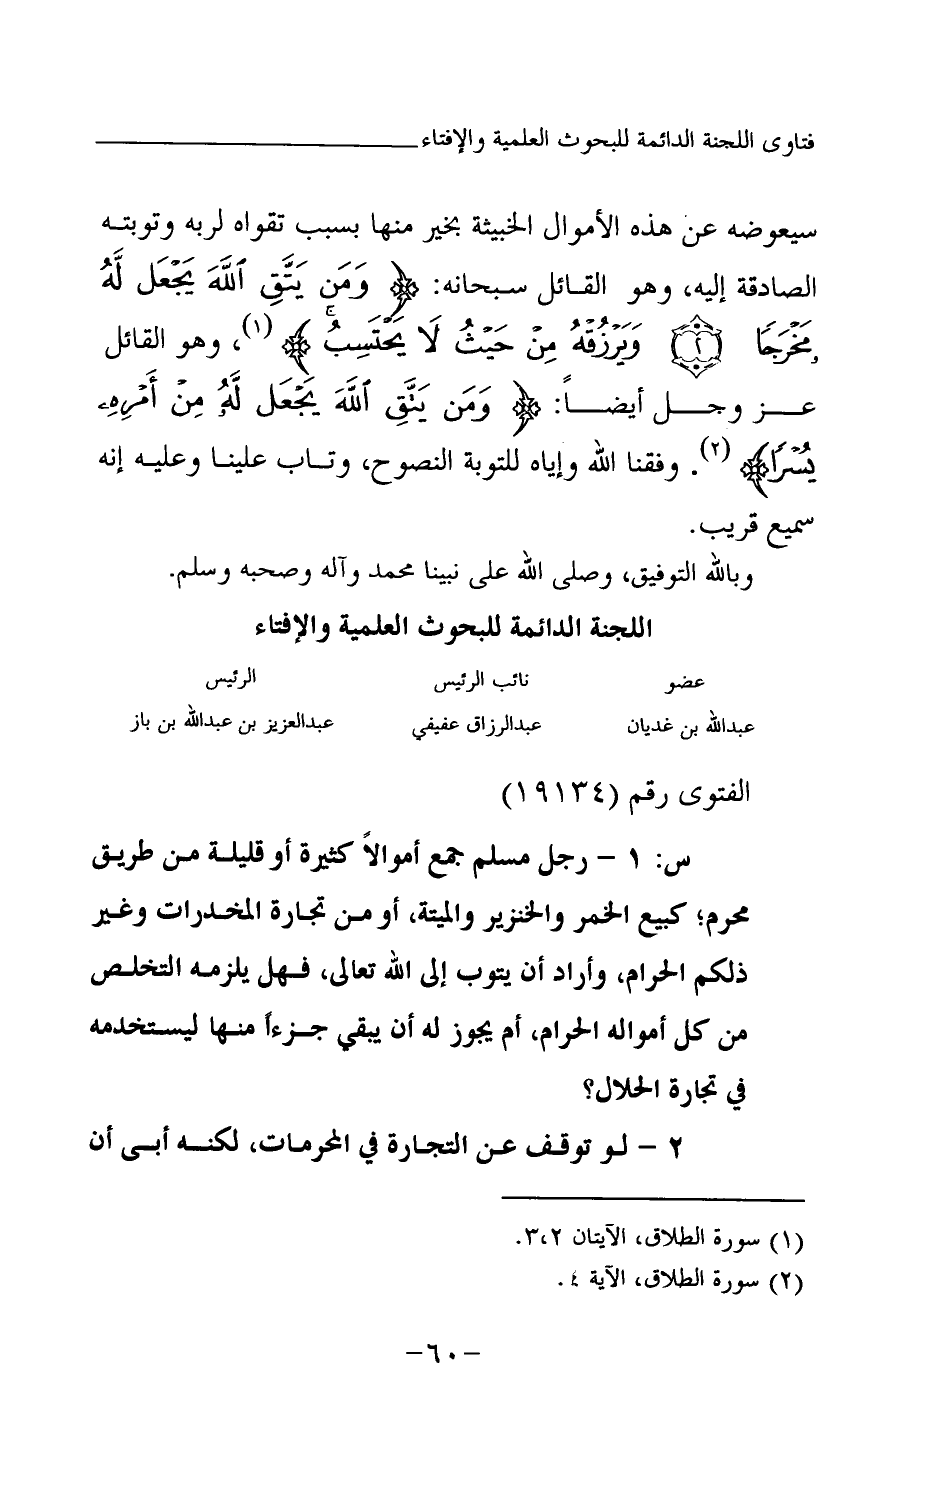 فتاوى اللجنة الدائمة للبحوث العلمية والإفتاء
سيعوضه عن هذه الأموال الخبيثة بخير منها بسبب تقواه لربه وتوبته
الصادقة إليه، وهو القائل سبحانه: ﴿ وَمَن يَتَّقِ ٱللَّهَ يَجۡعَل لَّهُۥ
مَخۡرَجٗا ٢ وَيَرۡزُقۡهُ مِنۡ حَيۡثُ لَا يَحۡتَسِبُۚ ﴾ (١)، وهو القائل
عز وجل أيضاً: ﴿ وَمَن يَتَّقِ ٱللَّهَ يَجۡعَل لَّهُۥ مِنۡ أَمۡرِهِۦ
يُسۡرٗا﴾ (٢). وفقنا الله وإياه للتوبة النصوح، وتاب علينا وعليه إنه
سميع قريب.
وبالله التوفيق، وصلى الله على نبينا محمد وآله وصحبه وسلم.
اللجنة الدائمة للبحوث العلمية والإفتاء
عضو نائب الرئيس الرئيس
عبدالله بن غديان عبدالرزاق عفيفي عبدالعزيز بن عبدالله بن باز
الفتوى رقم (١٩١٣٤)
س: ١ – رجل مسلم جمع أموالاً كثيرة أو قليلة من طريق
محرم؛ كبيع الخمر والخنزير والميتة، أو من تجارة المخدرات وغير
ذلكم الحرام، وأراد أن يتوب إلى الله تعالى، فهل يلزمه التخلص
من كل أمواله الحرام، أم يجوز له أن يبقي جزءاً منها ليستخدمه
في تجارة الحلال؟
٢ – لو توقف عن التجارة في المحرمات، لكنه أبى أن
(١) سورة الطلاق، الآيتان ٣،٢.
(٢) سورة الطلاق، الآية ٤.
–٦٠–